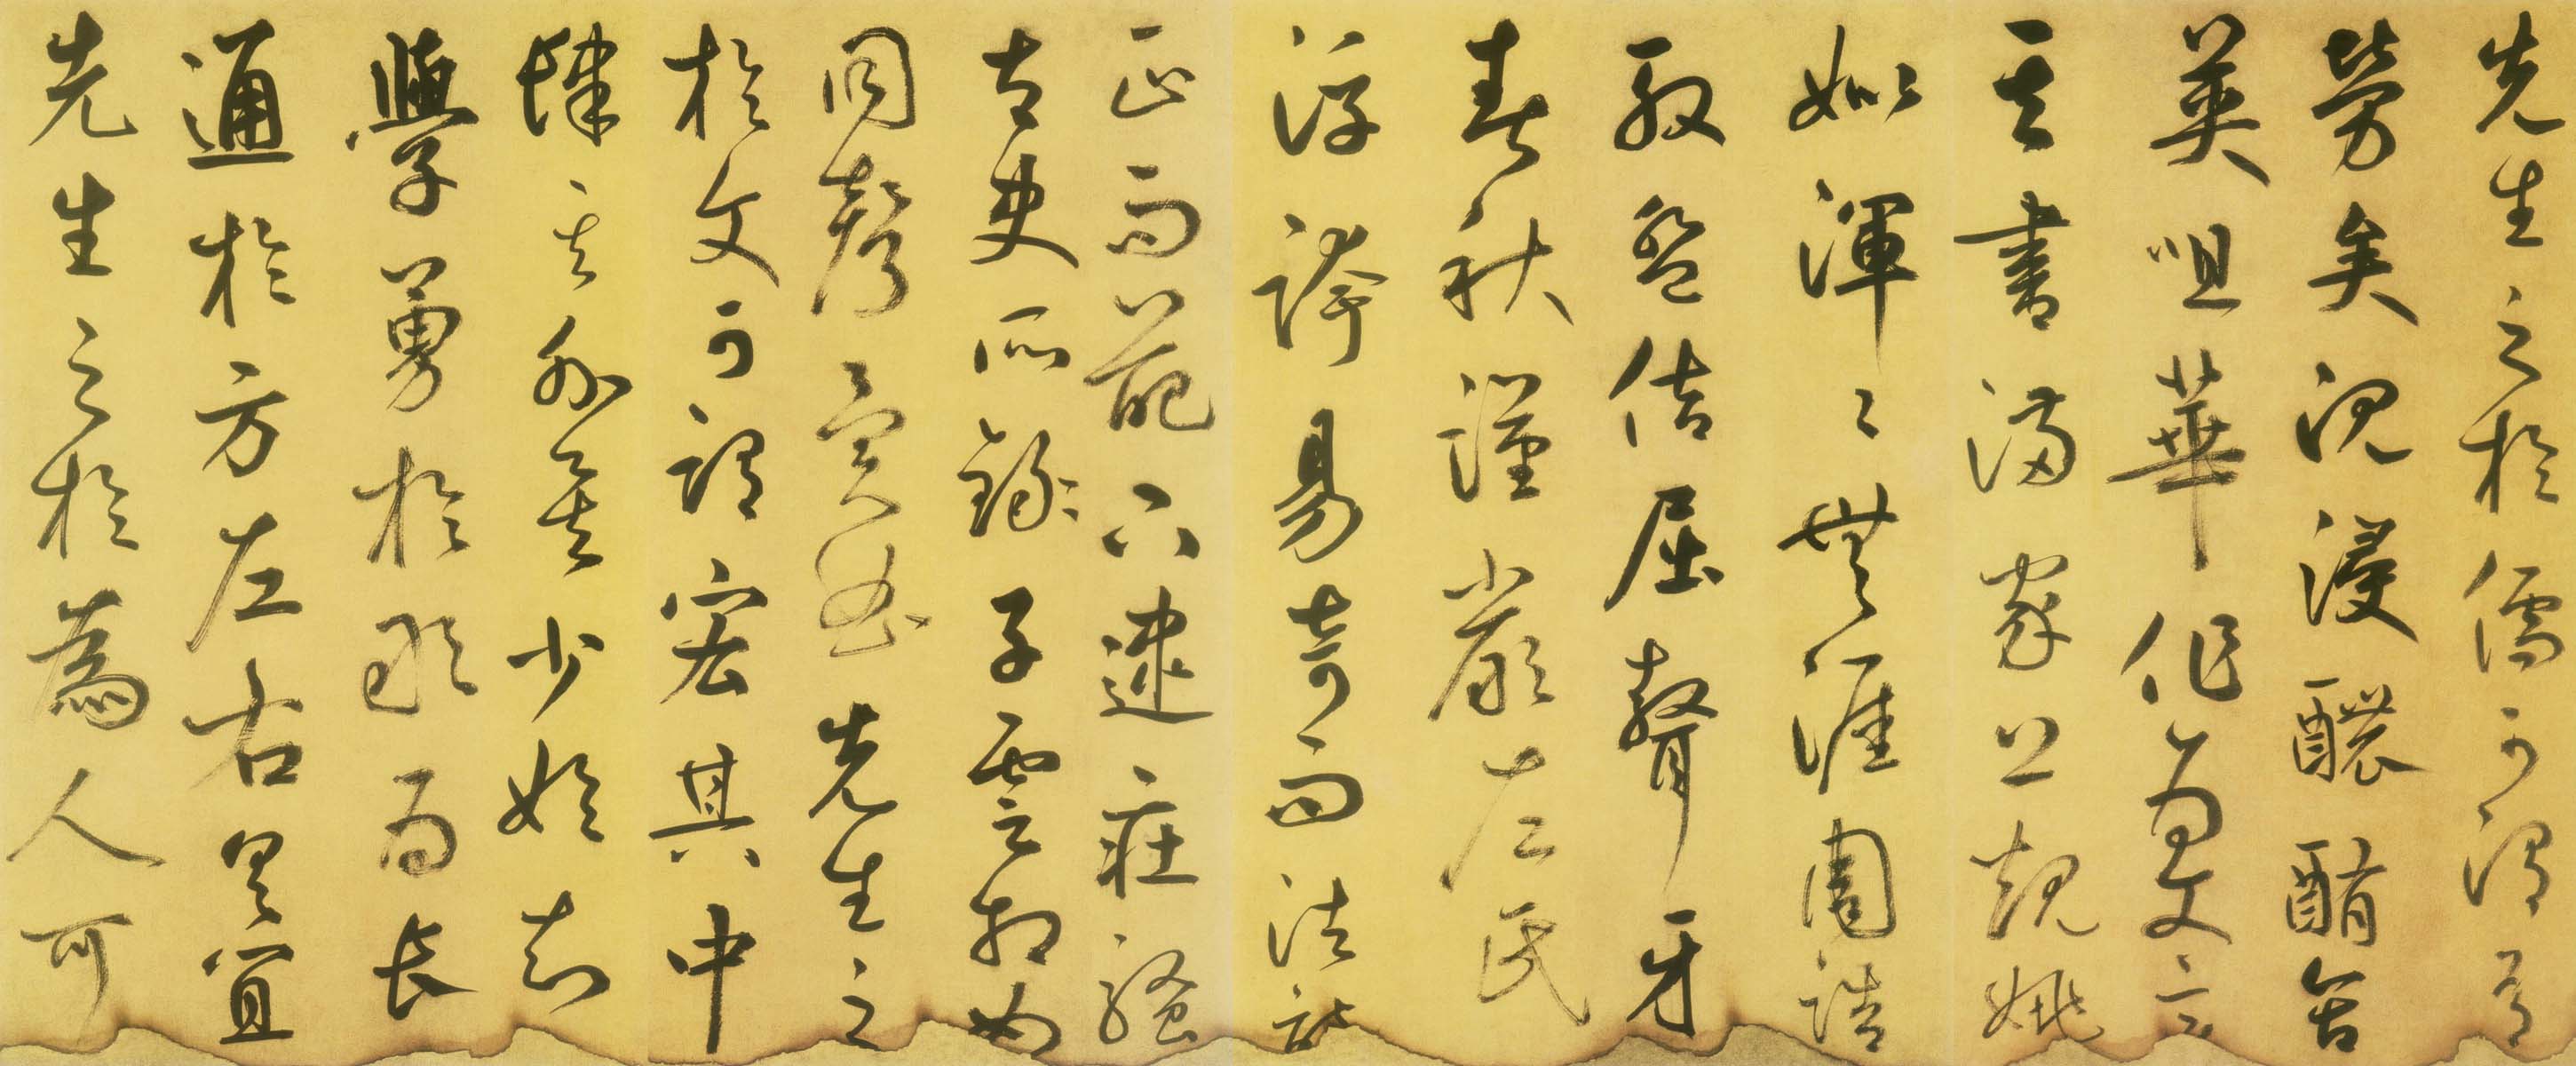 先生之於儒可謂有
勞矣沉浸醲含
英咀華作為文章
其書滿家上規姚
姒渾渾無涯周誥
殷盤佶屈聱牙
春秋謹嚴左氏
浮誇易奇而法詩
正而葩下逮莊騷
古史所錄子雲相如
同聲異曲先生之
於文可謂宏其中
肆其外矣少始知
學勇於敢為長
通於方左右具宜
先生之於為人可